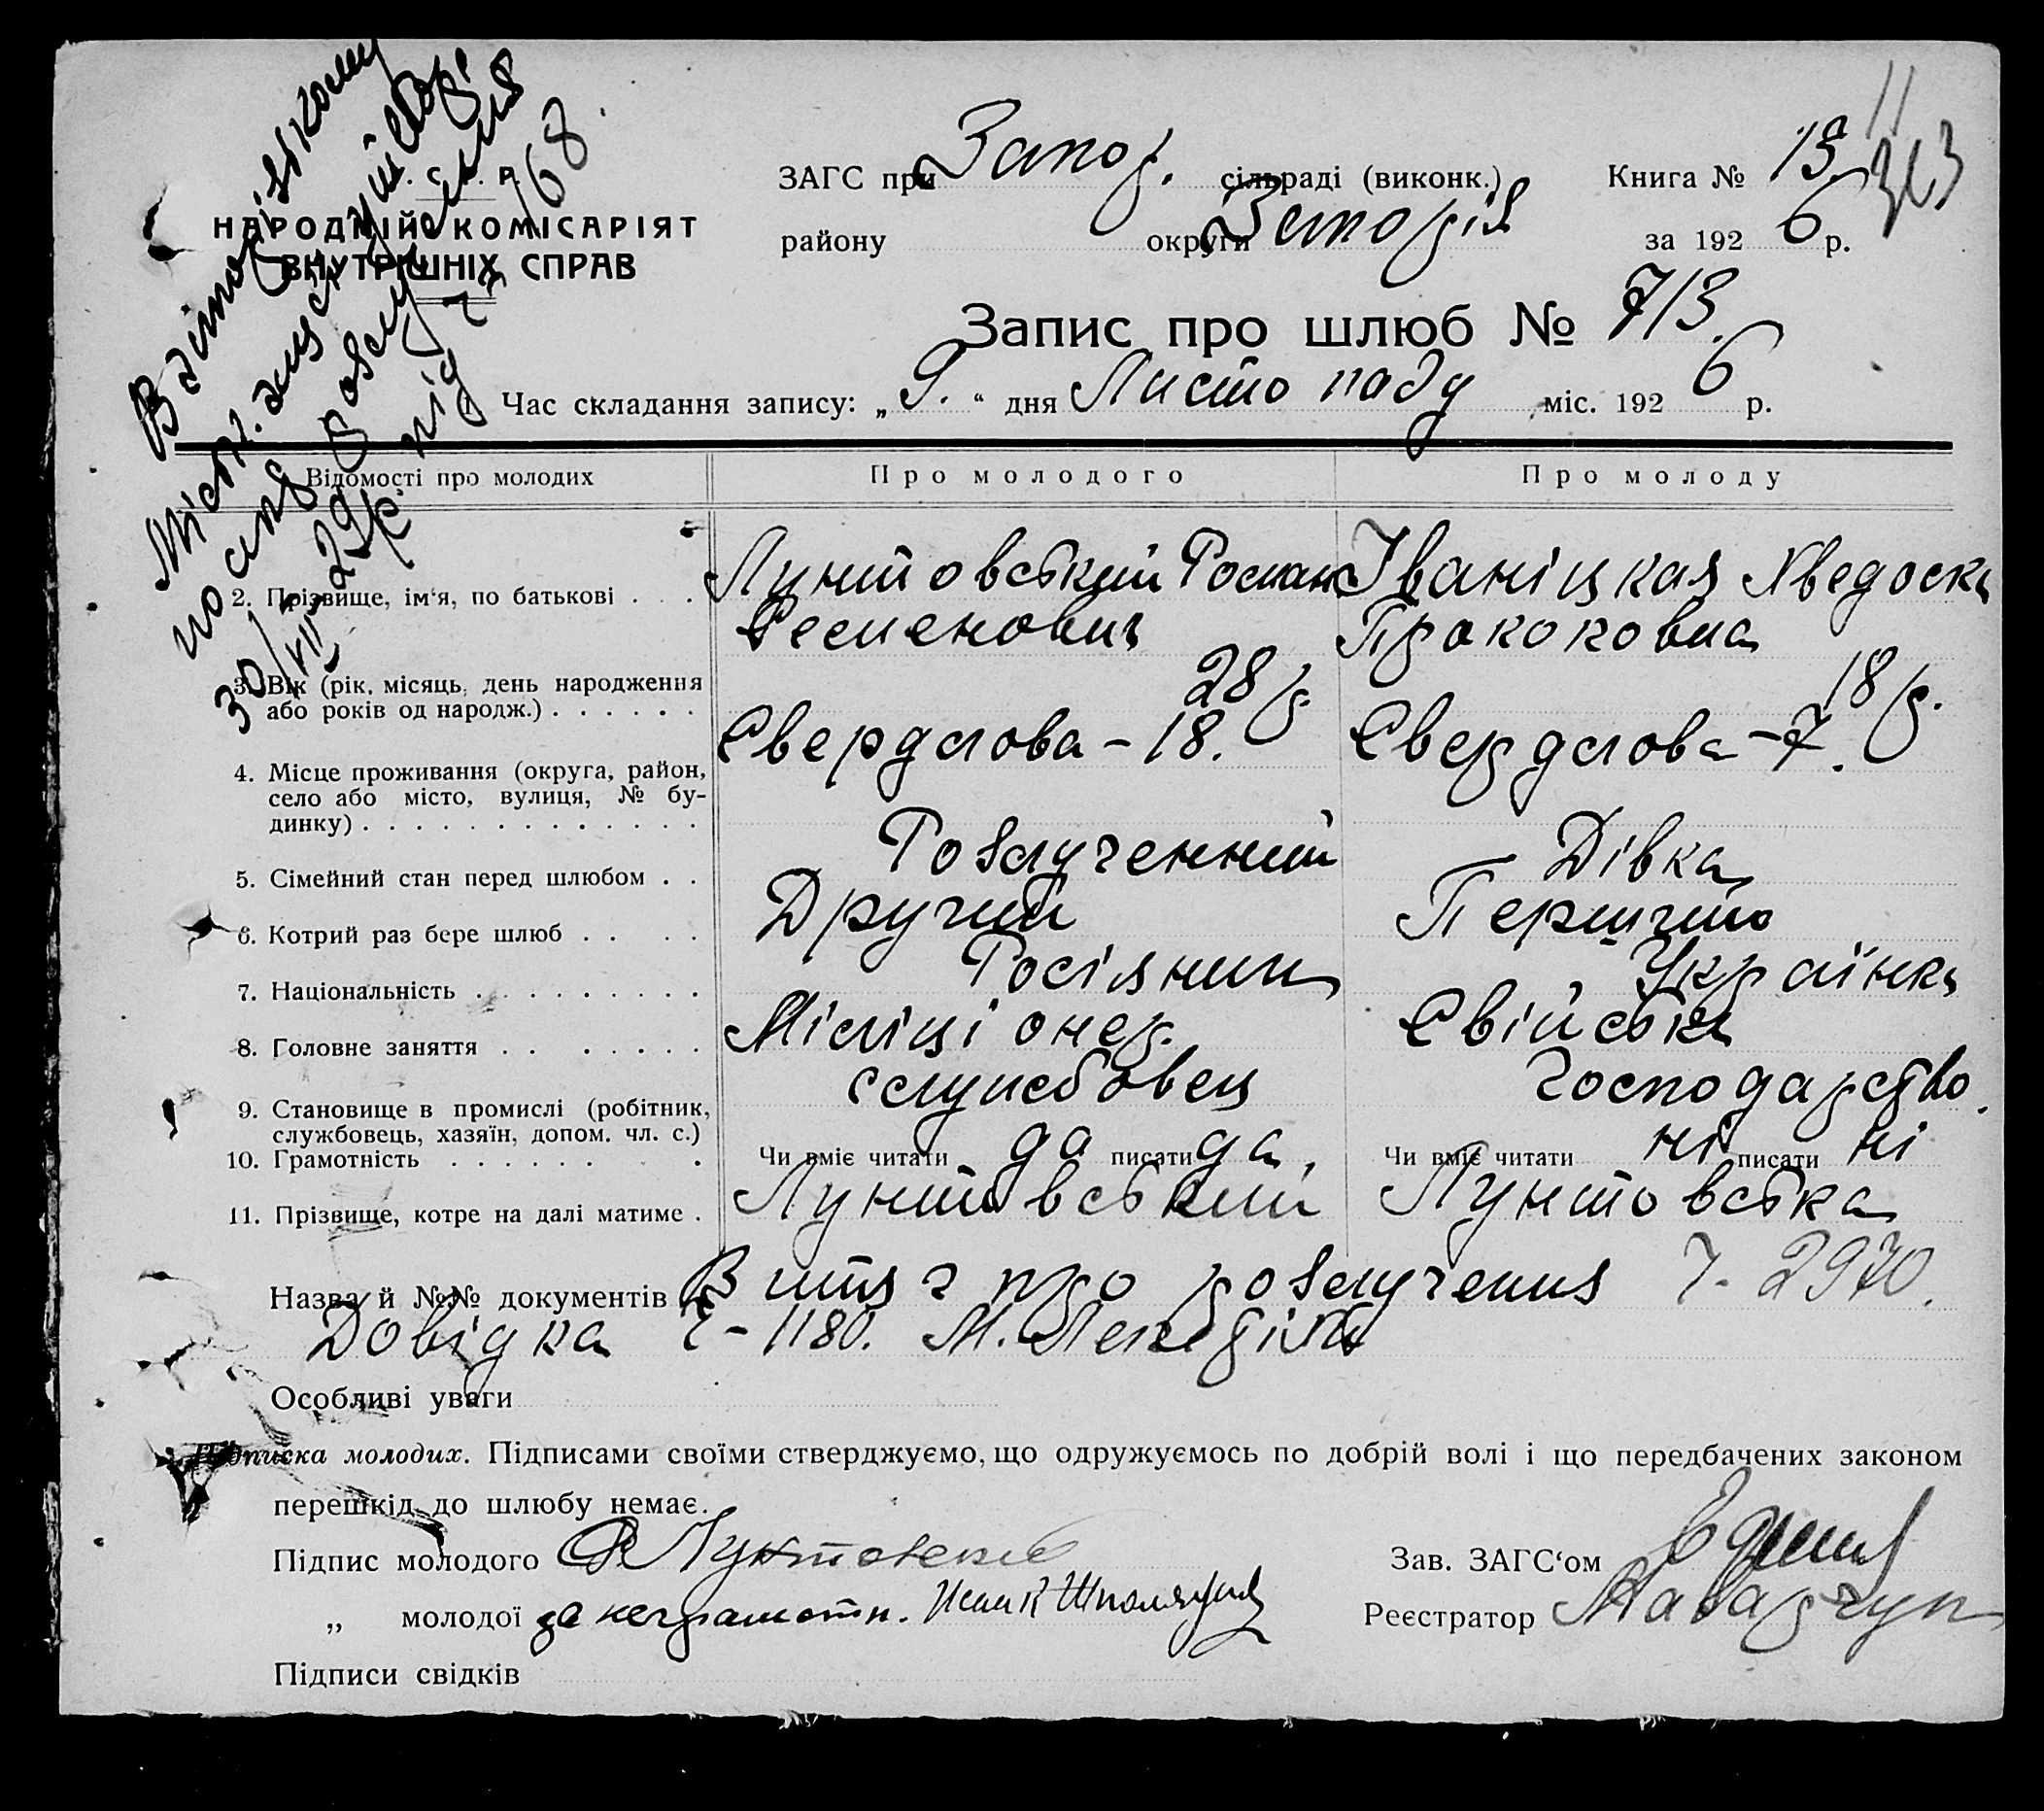 НАРОДНІЙ КОМІСАРІЯТ
ВНУТРІШНІХ СПРАВ
ЗАГС при Запор. сільраді (виконк.) Книга № 13
району округи за 1926 р.
Запис про шлюб № 713.
Час складання запису: „9.“ дня Листопаду міс. 1926 р.
Відомості про молодих Про молодого Про молоду
2. Прізвище, ім‘я, по батькові . . . Лунтовський Роман Іваніцкая
Семенович
3. Вік (рік, місяць, день народження 28 р. 18 р.
або років од народж.) . . . . . .
4. Місце проживання (округа, район, Свердлова – 18. Свердлова – 7.
село або місто, вулиця, № бу-
динку) . . . . . . . . . . . . .
5. Сімейний стан перед шлюбом . . Розлученний Дівка
6. Котрий раз бере шлюб . . . . Другий
7. Національність . . . . . . . . . Українка
8. Головне заняття . . . . . . . Міліціонер. Свійське
господарство.
9. Становище в промислі (робітник, службовец
службовець, хазяїн, допом. чл. с.)
10. Грамотність . . . . . . . Чи вміє читати да писати да, Чи вміє читати ні писати ні
11. Прізвище, котре на далі матиме . Лунтовський Лунтовська
Назва й №№ документів Витяг про розлучення ч. 2970.
Довідка ч – 1180.
Особливі уваги
Підписка молодих. Підписами своїми стверджуємо, що одружуємось по добрій волі і що передбачених законом
перешкід до шлюбу немає.
Підпис молодого Лунтовский Зав. ЗАГС‘ом
„ молодої за неграмотн. Реєстратор
Підписи свідків